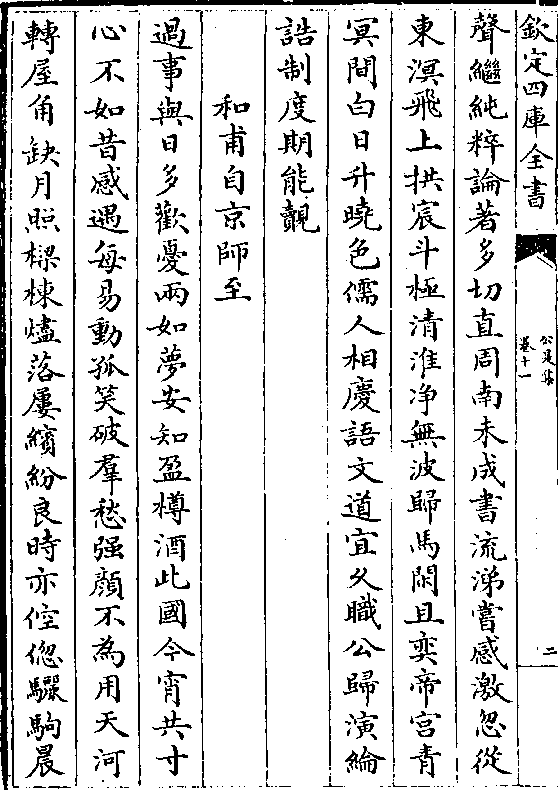 欽定四庫全書
公是集
卷十一
二
聲繼純粹論著多切直周南未成書流涕嘗感激忽從
東溟飛上拱宸斗極清淮净無波歸馬閑且奕帝宫青
冥間白日升曉色儒人相慶語文道宜久職公歸演綸
誥制度期能覿
和甫自京師至
過事與日多歡憂兩如夢安知盈樽酒此國今宵共寸
心不如昔感遇每易動孤笑破羣愁强顔不為用天河
轉屋角缺月照樑棟燼落屢繽紛良時亦倥傯驪駒晨